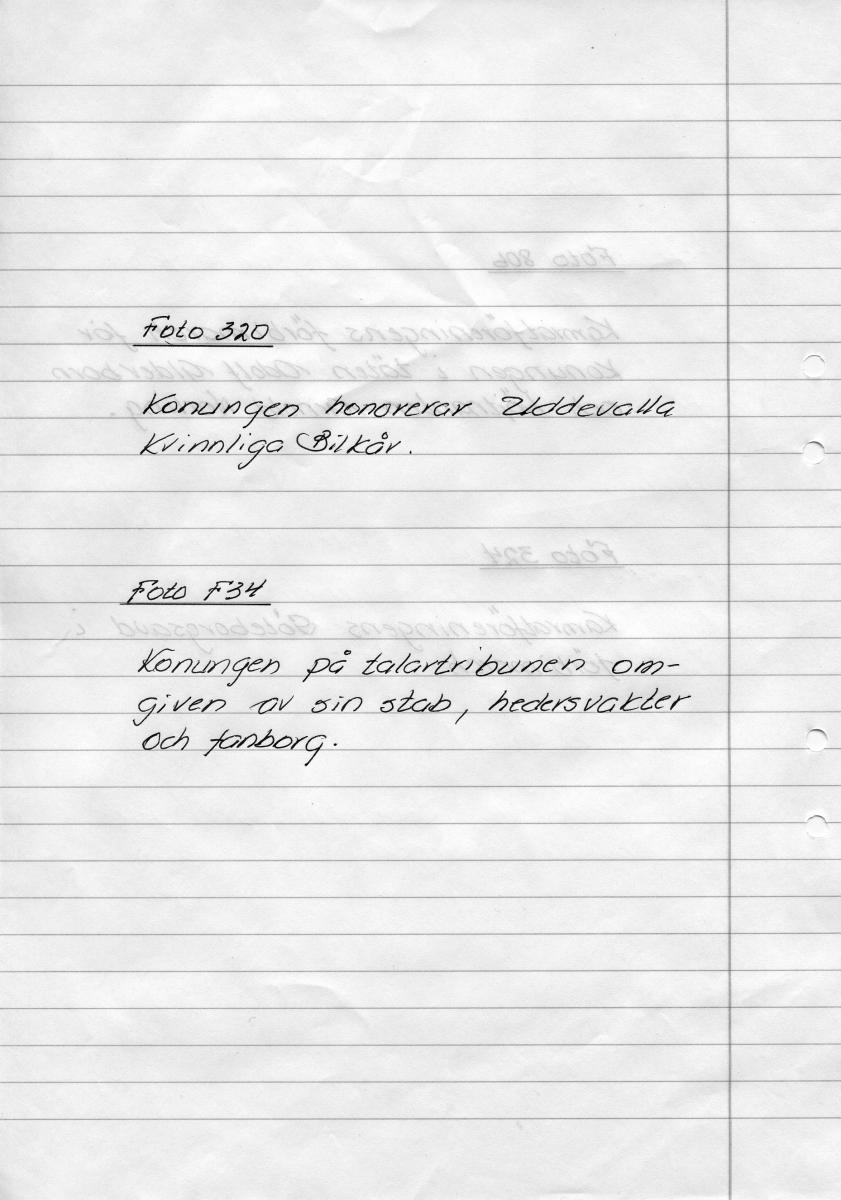 Foto 320
Konungen honorerar Uddevalla
Kvinnliga Bilkår.
Foto F34
Konungen på talartribunen om-
given av sin stab, hedersvakter
och fanborg.